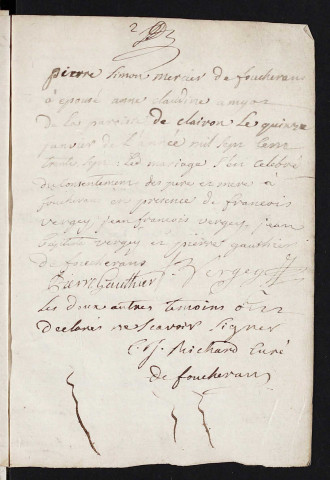 2
pierre simon mercier de foucherans
à epousé anne claudine amyot
de la paroisse de cleiron le quinze
janvier de l'année mil sept cent
trente sept : le mariage s'est celebré
du consentement des pere et mere à
foucherans en presence de francois
vergey, jean francois vergey, jean
vergey et pierre gauthier
de foucherans
Pierre Gauthier Vergey
les deux autres temoins ont
declarés ne scavoir signer
Richard Curé
de foucherans